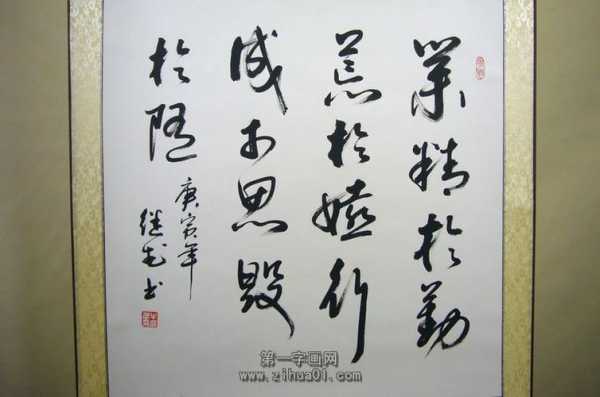 業精於勤
荒於嬉行
成于思毁
於随
庚寅年
继书
第一字画网
www.zihua01.com